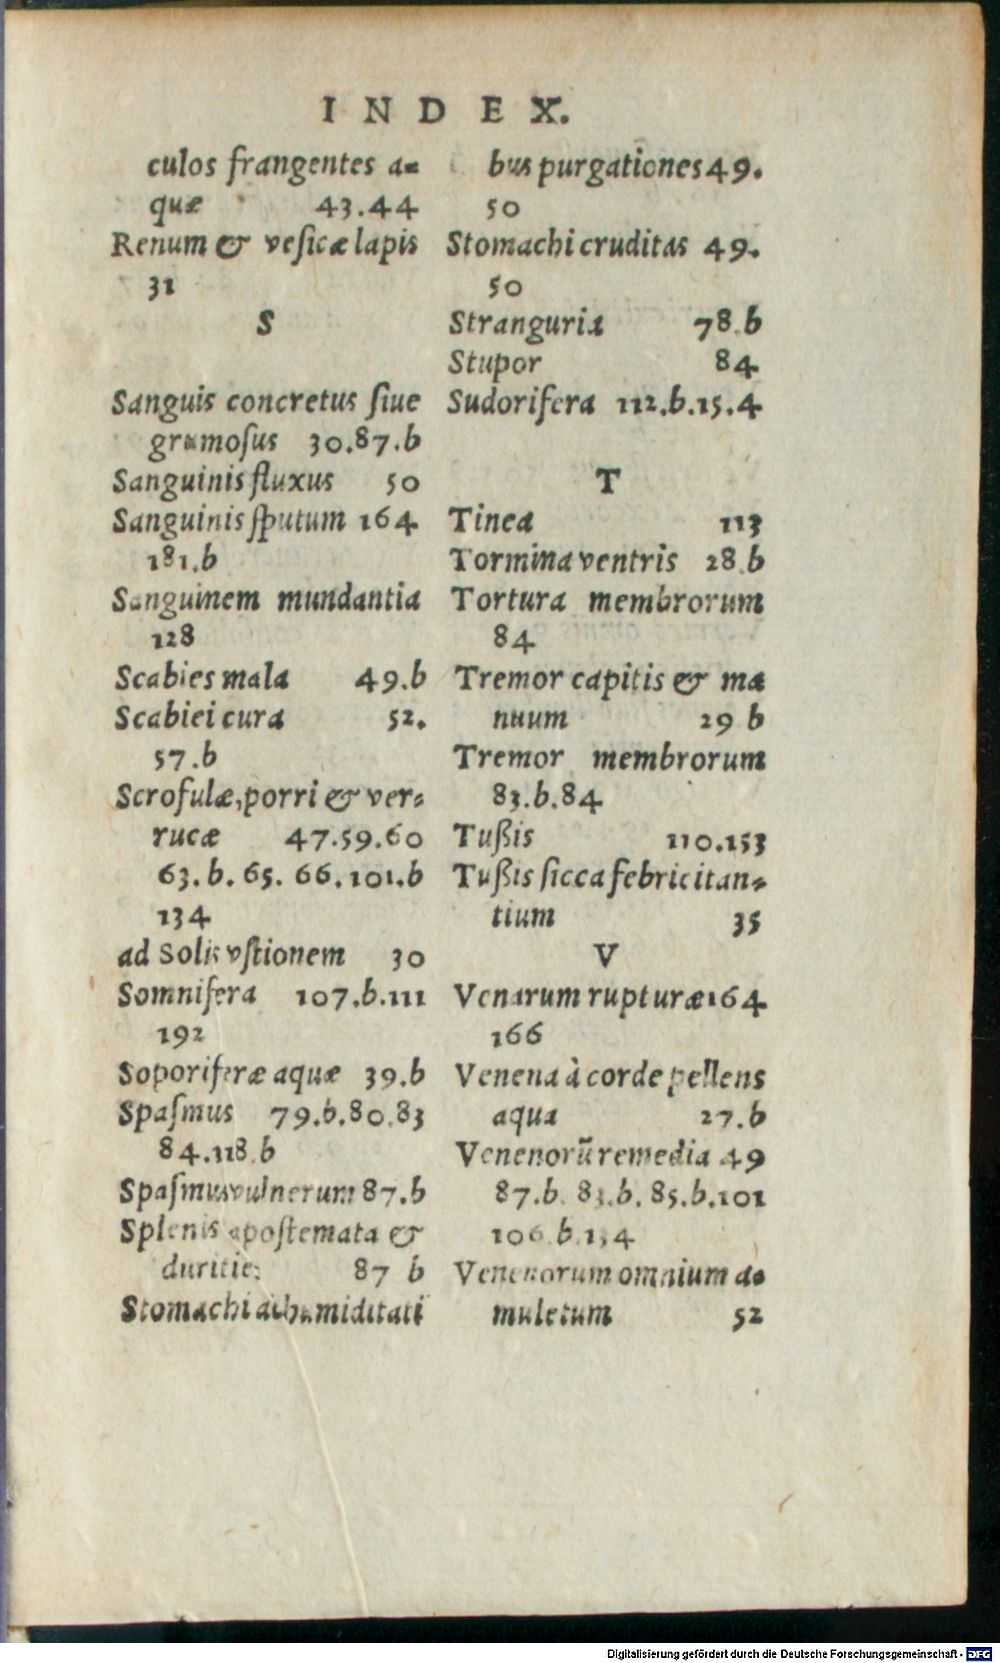 INDEX.
culos frangentes a=
quæ 43.44
Renum & vesicæ lapis
31
S
Sanguis concretus siue
grumosus 30.87.b
Sanguinis fluxus 50
Sanguinis sputum 164
181.b
Sanguinem mundantia
128
Scabies mala 49.b
Scabiei cura 52.
57.b
Scrofulæ, porri & ver=
rucæ 47.59.60
63.b.65.66.101.b
134
ad Solis vstionem 30
Somnifera 107.b.111
192
Soporiferæ aquæ 39.b
Spasmus 79.b.80.83
84.118.b
Spasmus vulnerum 87.b
Splenis apostemata &
durities 87 b
Stomachi ac humiditati
bus purgationes 49.
50
Stomachi cruditas 49.
50
Stranguria 78.b
Stupor 84
Sudorifera 112.b.15.4
T
Tinea 113
Tormina ventris 28.b
Tortura membrorum
84
Tremor capitis & ma
nuum 29 b
Tremor membrorum
83.b.84
Tußis 110.153
Tußis sicca febricitan=
tium 35
V
Venarum rupturæ 164
166
Venena à corde pellens
aqua 27.b
Venenorũ remedia 49
87.b. 83.b. 85.b.101
106.b.134
Venenorum omnium a=
muletum 52
Digitalisierung gefördert durch die Deutsche Forschungsgemeinschaft - DFG